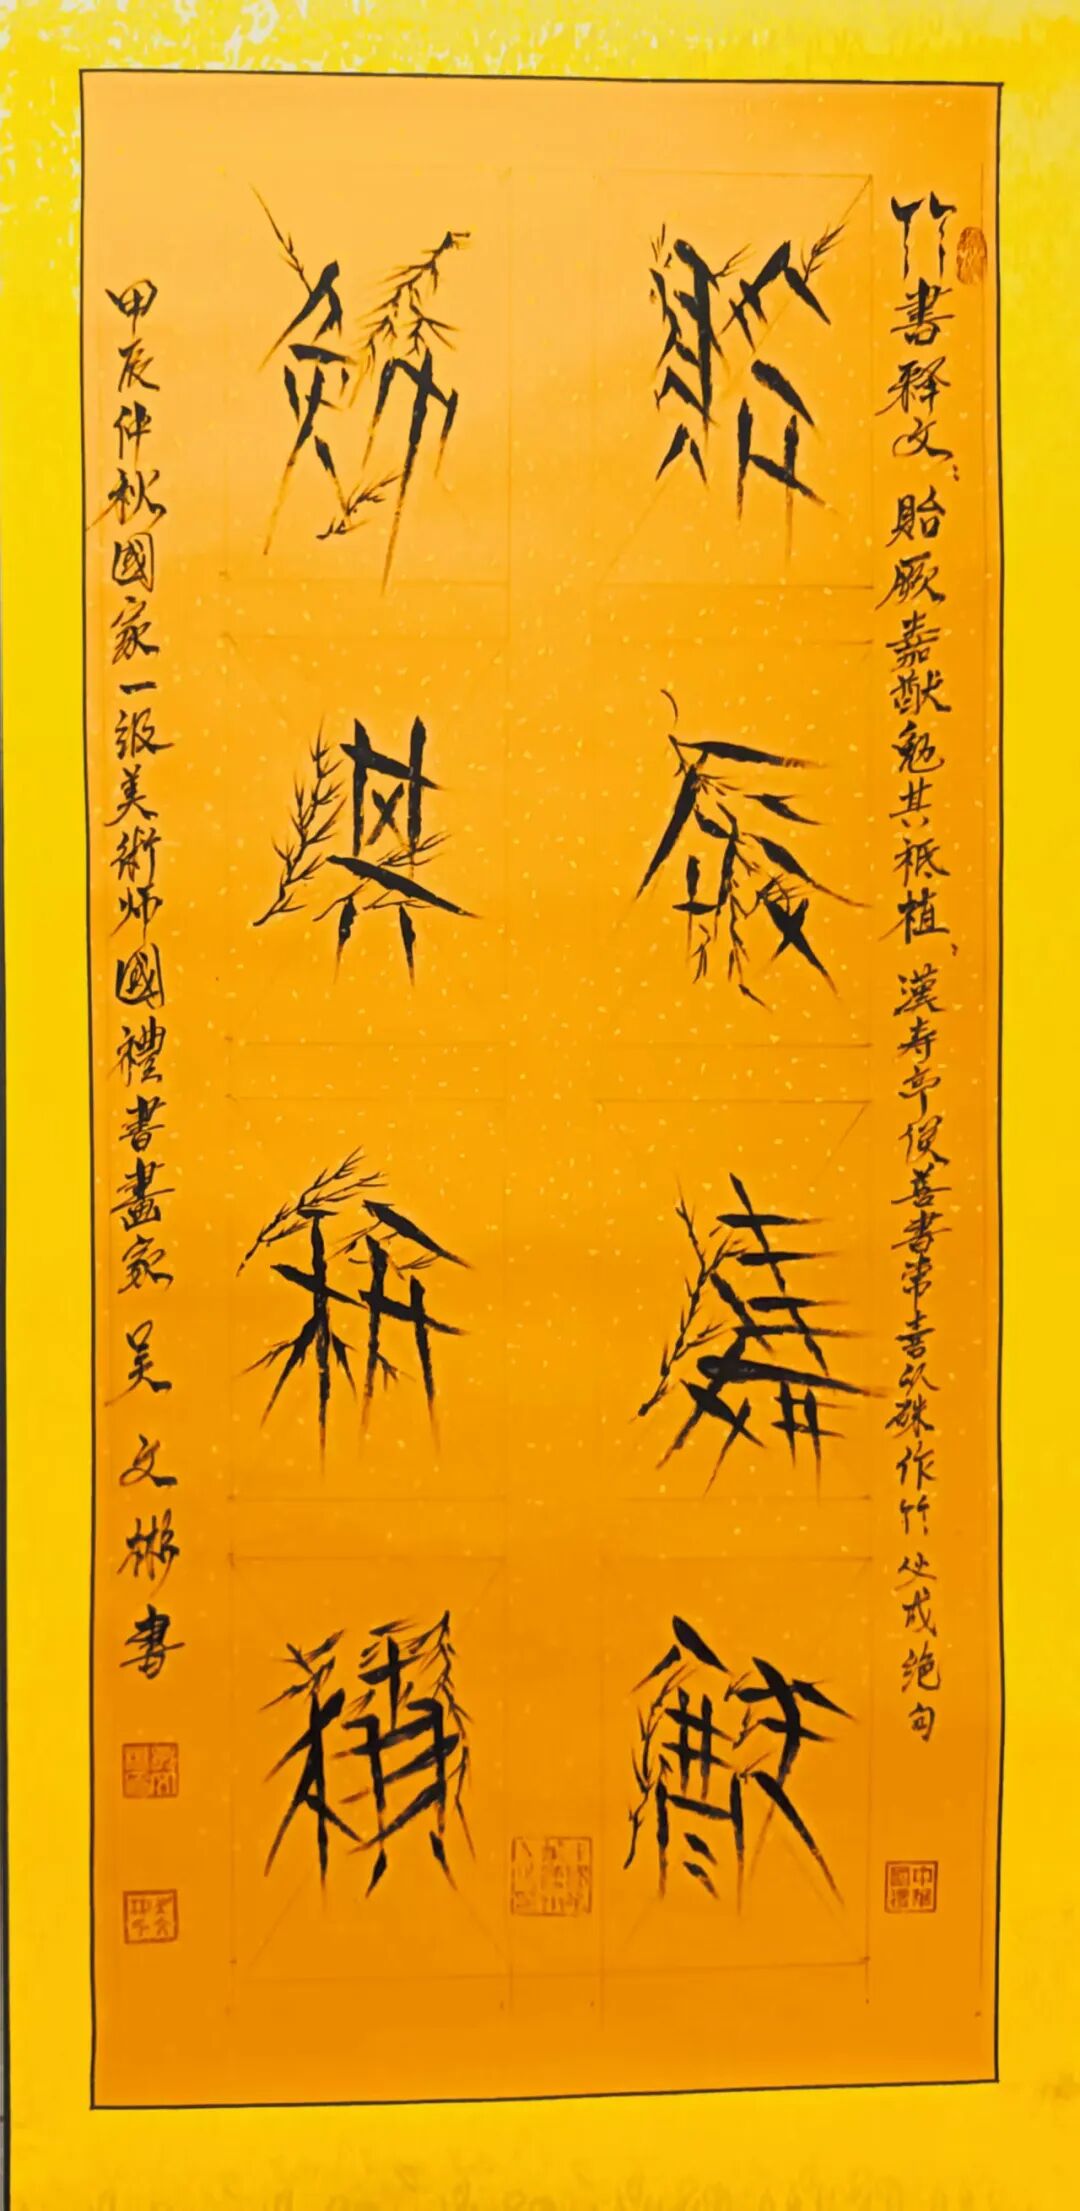 竹書释文：貽厥嘉猷勉其祗植：漢寿亭侯善書常喜以硃作竹
成绝句
貽厥嘉猷
勉其祗植
甲辰仲秋國家一级美術师國禮書畫家吴文彬書